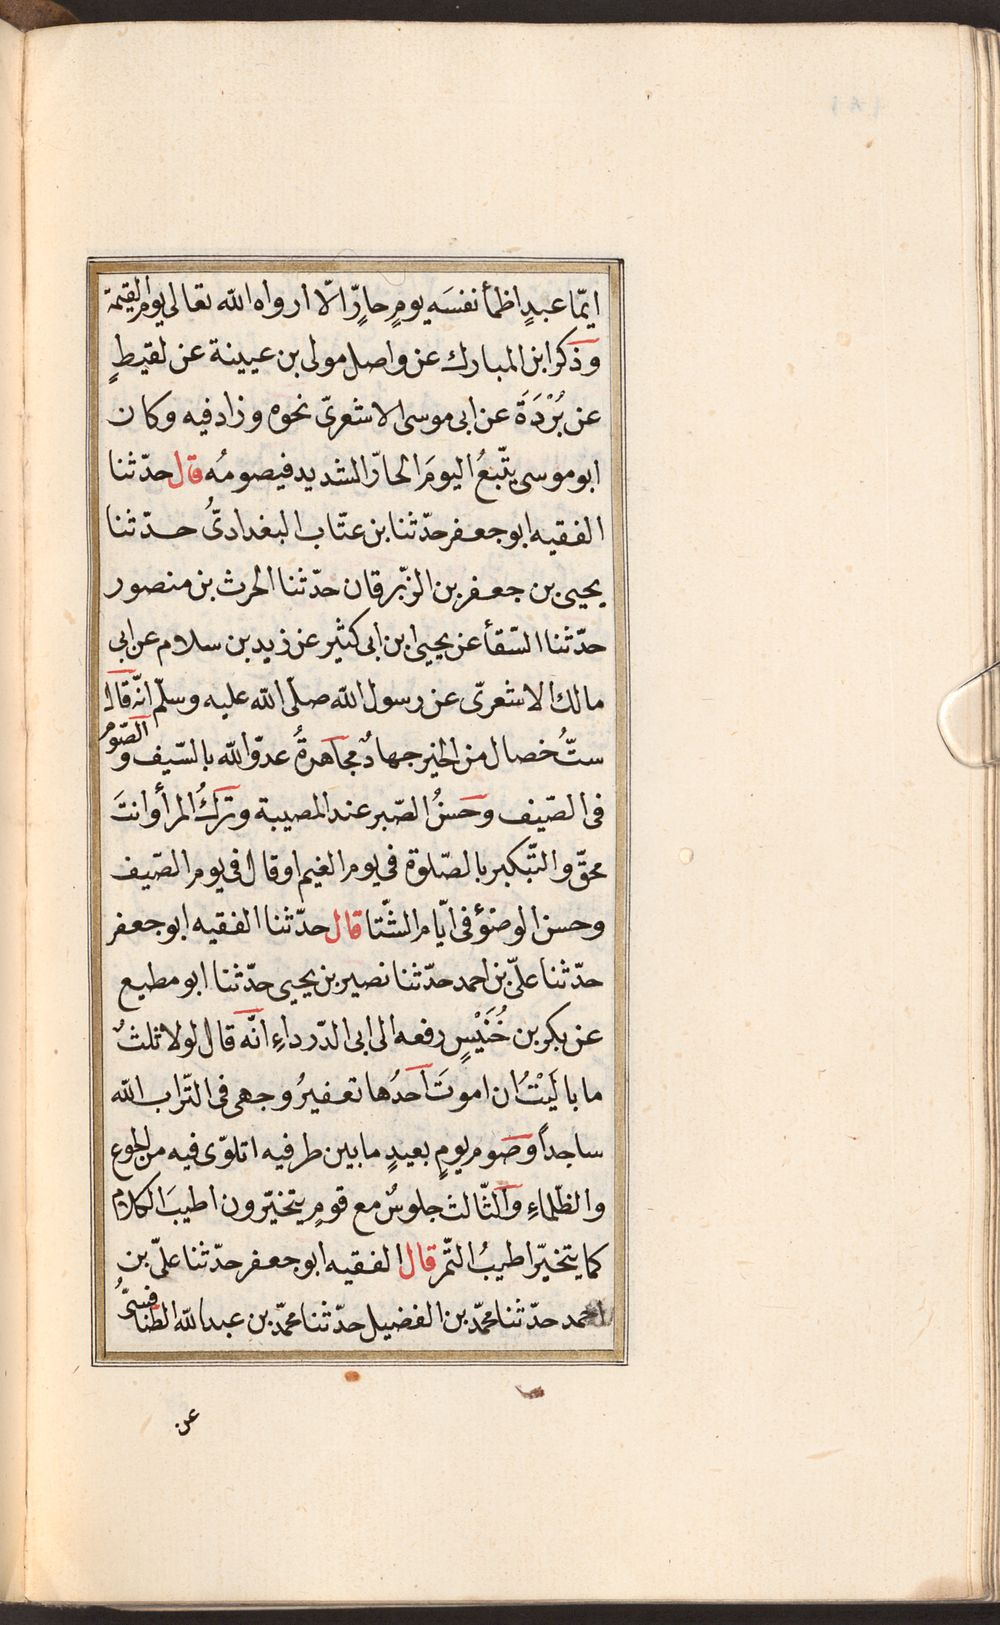 ايّما عبدٍ اظمأ نفسَه يومٍ حارٍّ الّا ارواه الله تعالى يوم القيمة
وذكر ابن المبارك عن واصل مولى بن عيينة عن لقيطٍ
عن بُرْدَةَ عن ابى موسى الاشعرىّ نحوه وزاد فيه وكان
ابو موسى يتّبعُ اليومَ الحارّ الشديد فيصومُه قال حدّثنا
الفقيه ابو جعفر حدّثنا بن عتّاب البغدادىُّ حدّثنا
يحيى بن جعفر بن الزّبرقان حدّثنا الحرث بن منصور
حدّثنا السّقأ عن يحيى ابن ابى كثير عن زيد بن سلام عن ابى
مالك الاشعرىّ عن رسول الله صلّى الله عليه وسلّم انّه قال
ستُّ خصال من الخير جهادٌ مجاهدةُ عدوّ الله بالسّيف والصّومُ
فى الصّيف وحسنُ الصّبر عند المصيبة وتركُ المرأ وانتَ
محقّ والتّبكير بالصّلوة فى يوم الغيم او قال فى يوم الصّيف
وحسن الوضؤ فى ايّام الشّتا قال حدّثنا الفقيه ابو جعفر
حدّثنا علىّ بن احمد حدّثنا نصير بن يحيى حدّثنا ابو مطيع
عن بكر بن خُنَيْسٍ رفعه الى ابى الدّرداءِ انّه قال لولا ثلثٌ
ما بالَيْتُ ان اموتَ احدُها تعفيرُ وجهى فى التّراب الله
ساجداً وصوم يومٍ بعيدٍ ما بين طرفيه اتلوّى فيه من الجوع
والظّماءِ والثّالث جلوسٌ مع قومٍ يتخيّرون اطيبَ الكلام
كما يتخيّر اطيبُ التّمر قال الفقيه ابو جعفر حدّثنا علىّ بن
احمد حدّثنا محمّد بن الفضيل حدّثنا محمّد بن عبد الله الطنافسىُّ
عن